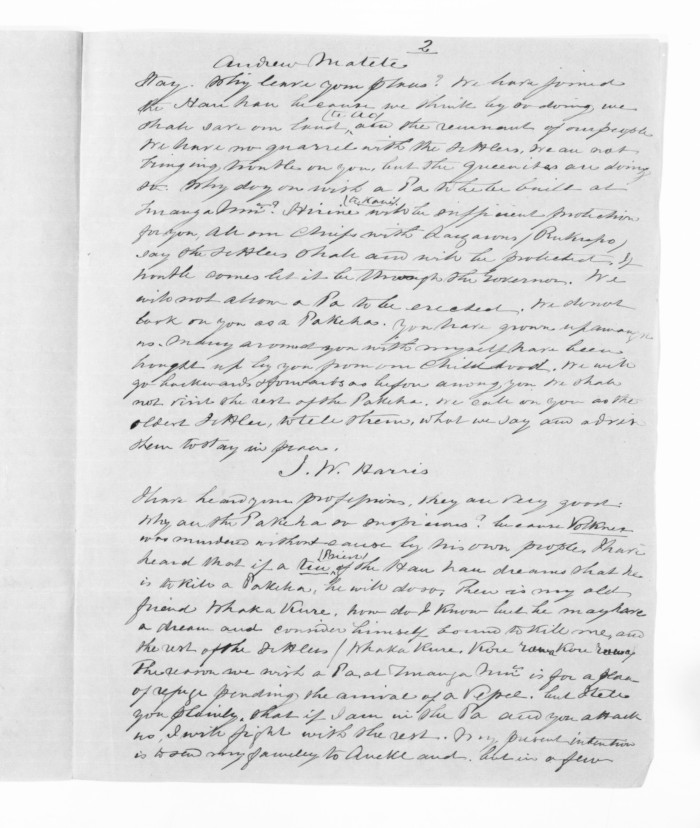 2
Andrew Matete
Stay. Why leave your place? We have joined
the Hau hau because we think by so doing we
shall save our land (te Ao) and the remnant of our people
We have no quarrel with the Settlers, we are not
bringing trouble on you, but the Queenites are doing
so. Why do you wish a Pa to be built at
Hirini will be sufficient protection
for you, all our Chiefs with Lazarus (Rukupo)
say the Settlers shall and will be protected. If
trouble comes let it be through the Governor. We
will not allow a Pa to be erected. We do not
look on you as a Pakeha. You have grown up among
us. Many around you with myself have been
brought up by you from our Childhood. We will
go backwards & forwards as before among you We shall
not visit the rest of the Pakeha. We call on you as the
oldest Settler, to tell them, what we say and advise
them to stay in peace.
J. W. Harris
I have heard your professions, they are very good.
Why are the Pakeha so suspicious? because Volkner
was murdered without cause by his own people. I have
heard that if a tiu (Priest) of the Hau hau dreams that he
is to kill a Pakeha, he will do so. There is my old
friend Whaka Kure, how do I know but he may have
a dream and consider himself bound to kill me, and
the rest of the Settlers (Whaka Kure, Kore rawa Kore rawa)
The reason we wish a Pa at is for a place
of refuge pending the arrival of a Vessel. but I tell
you plainly, that if I am in the Pa and you attack
us, I will fight with the rest. My present intention
is to send my family to Auckland. but in a few